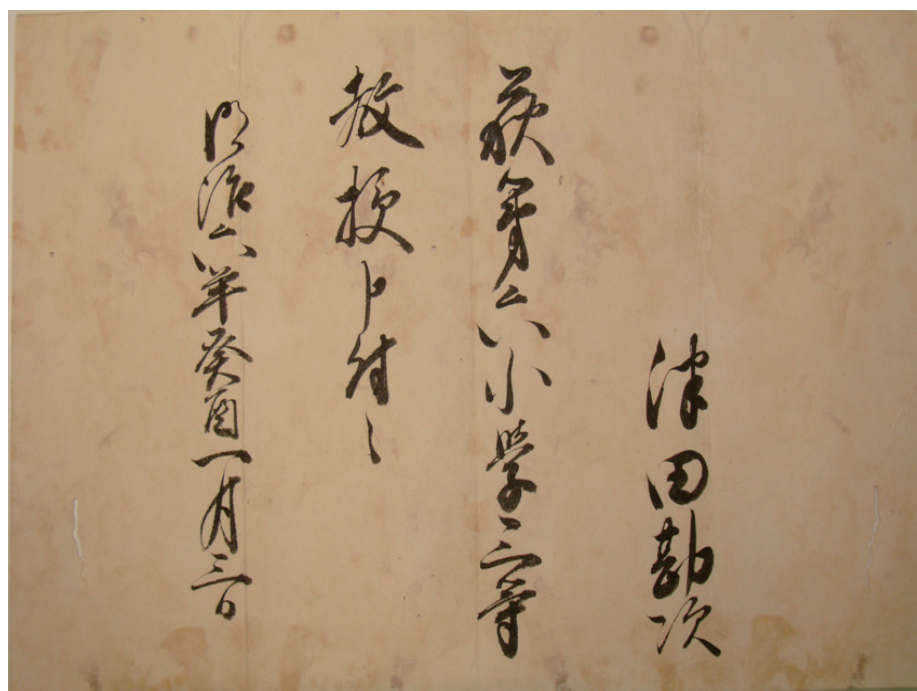 津田勘次
萩第六小学三等
教授申付候
明治六年癸酉一月三日